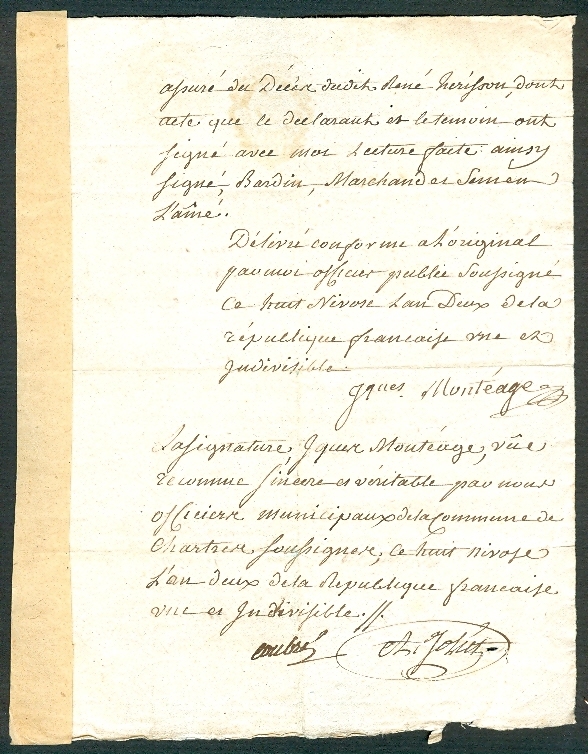 assuré du Décèx dudit René herisson, dont
acte que le declarant et le temoin ont
signé avec moi Lecture faite ainsy
signé, Bardin, Marchand et
L'aîné.
Délivré conforme a L'original
par moi officier public Soussigné
Ce huit Nivose L'an Deux de la
république francaise vne et
Jndivisible.
Jques Montéage
La signature, Jques Montéage, vüe
reconnue sincere et véritable par nous
officiers municipaux de la Commune de
Chartres soussignes, ce huit nivose
L'an deux de la République francaise
vne et Jndivisible .//.